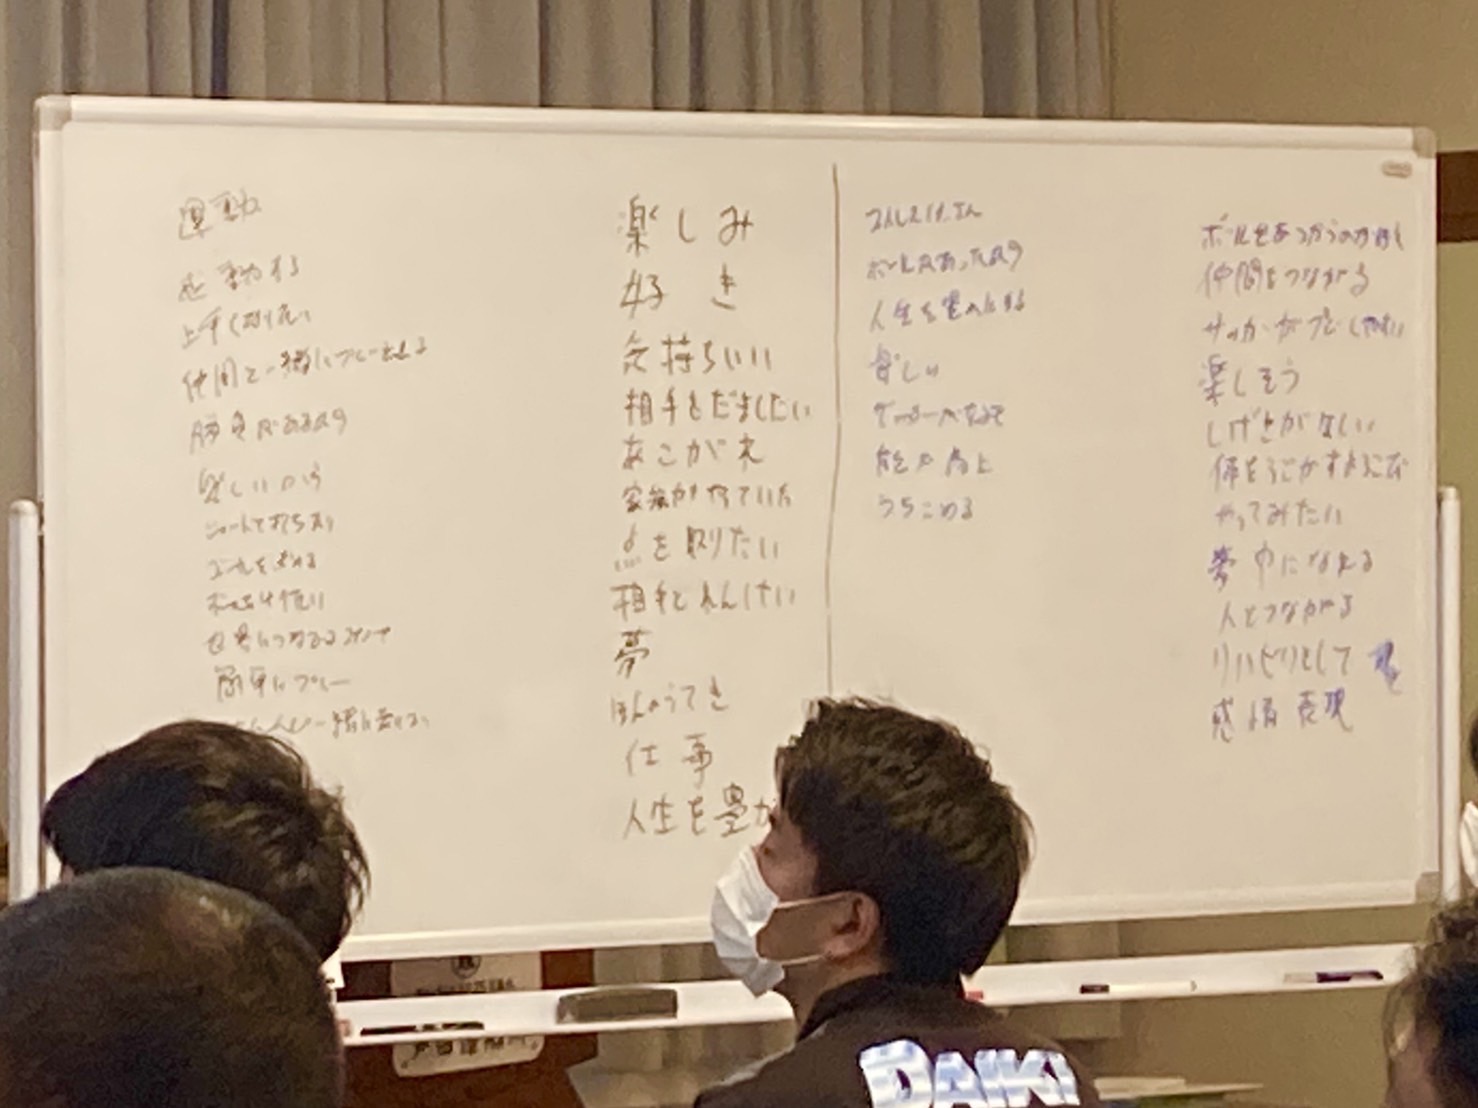 運動
感動する
上手くなりたい
仲間と一緒にプレー出来る
勝負があるから
楽しいから
シュートで打ち
ゴールを
世界につながる
簡単にプレー
一緒に
楽しみ
好き
気持ちいい
相手をだましたい
あこがれ
家族がやっていた
点を取りたい
相手と
夢
ほんのうてき
仕事
人生を豊か
ボールがあったから
人生を豊かにする
楽しい
能力向上
うちこめる
ボールをあつかうのが
仲間をつながる
サッカーがプレーしやすい
楽しそう
しげきがほしい
体をうごかすよろこび
やってみたい
夢中になれる
人とつながる
リハビリとして
感情表現
DAIKI